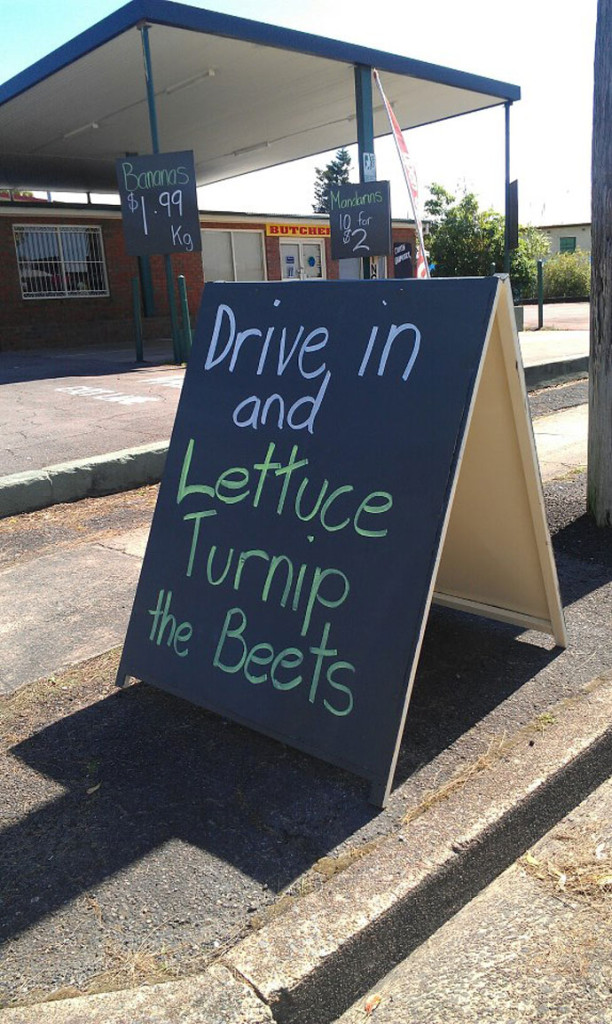 Bananas
$1.99
Kg
Mandarins
10 for
$2
BUTCHER
Drive in
and
Lettuce
Turnip
the Beets